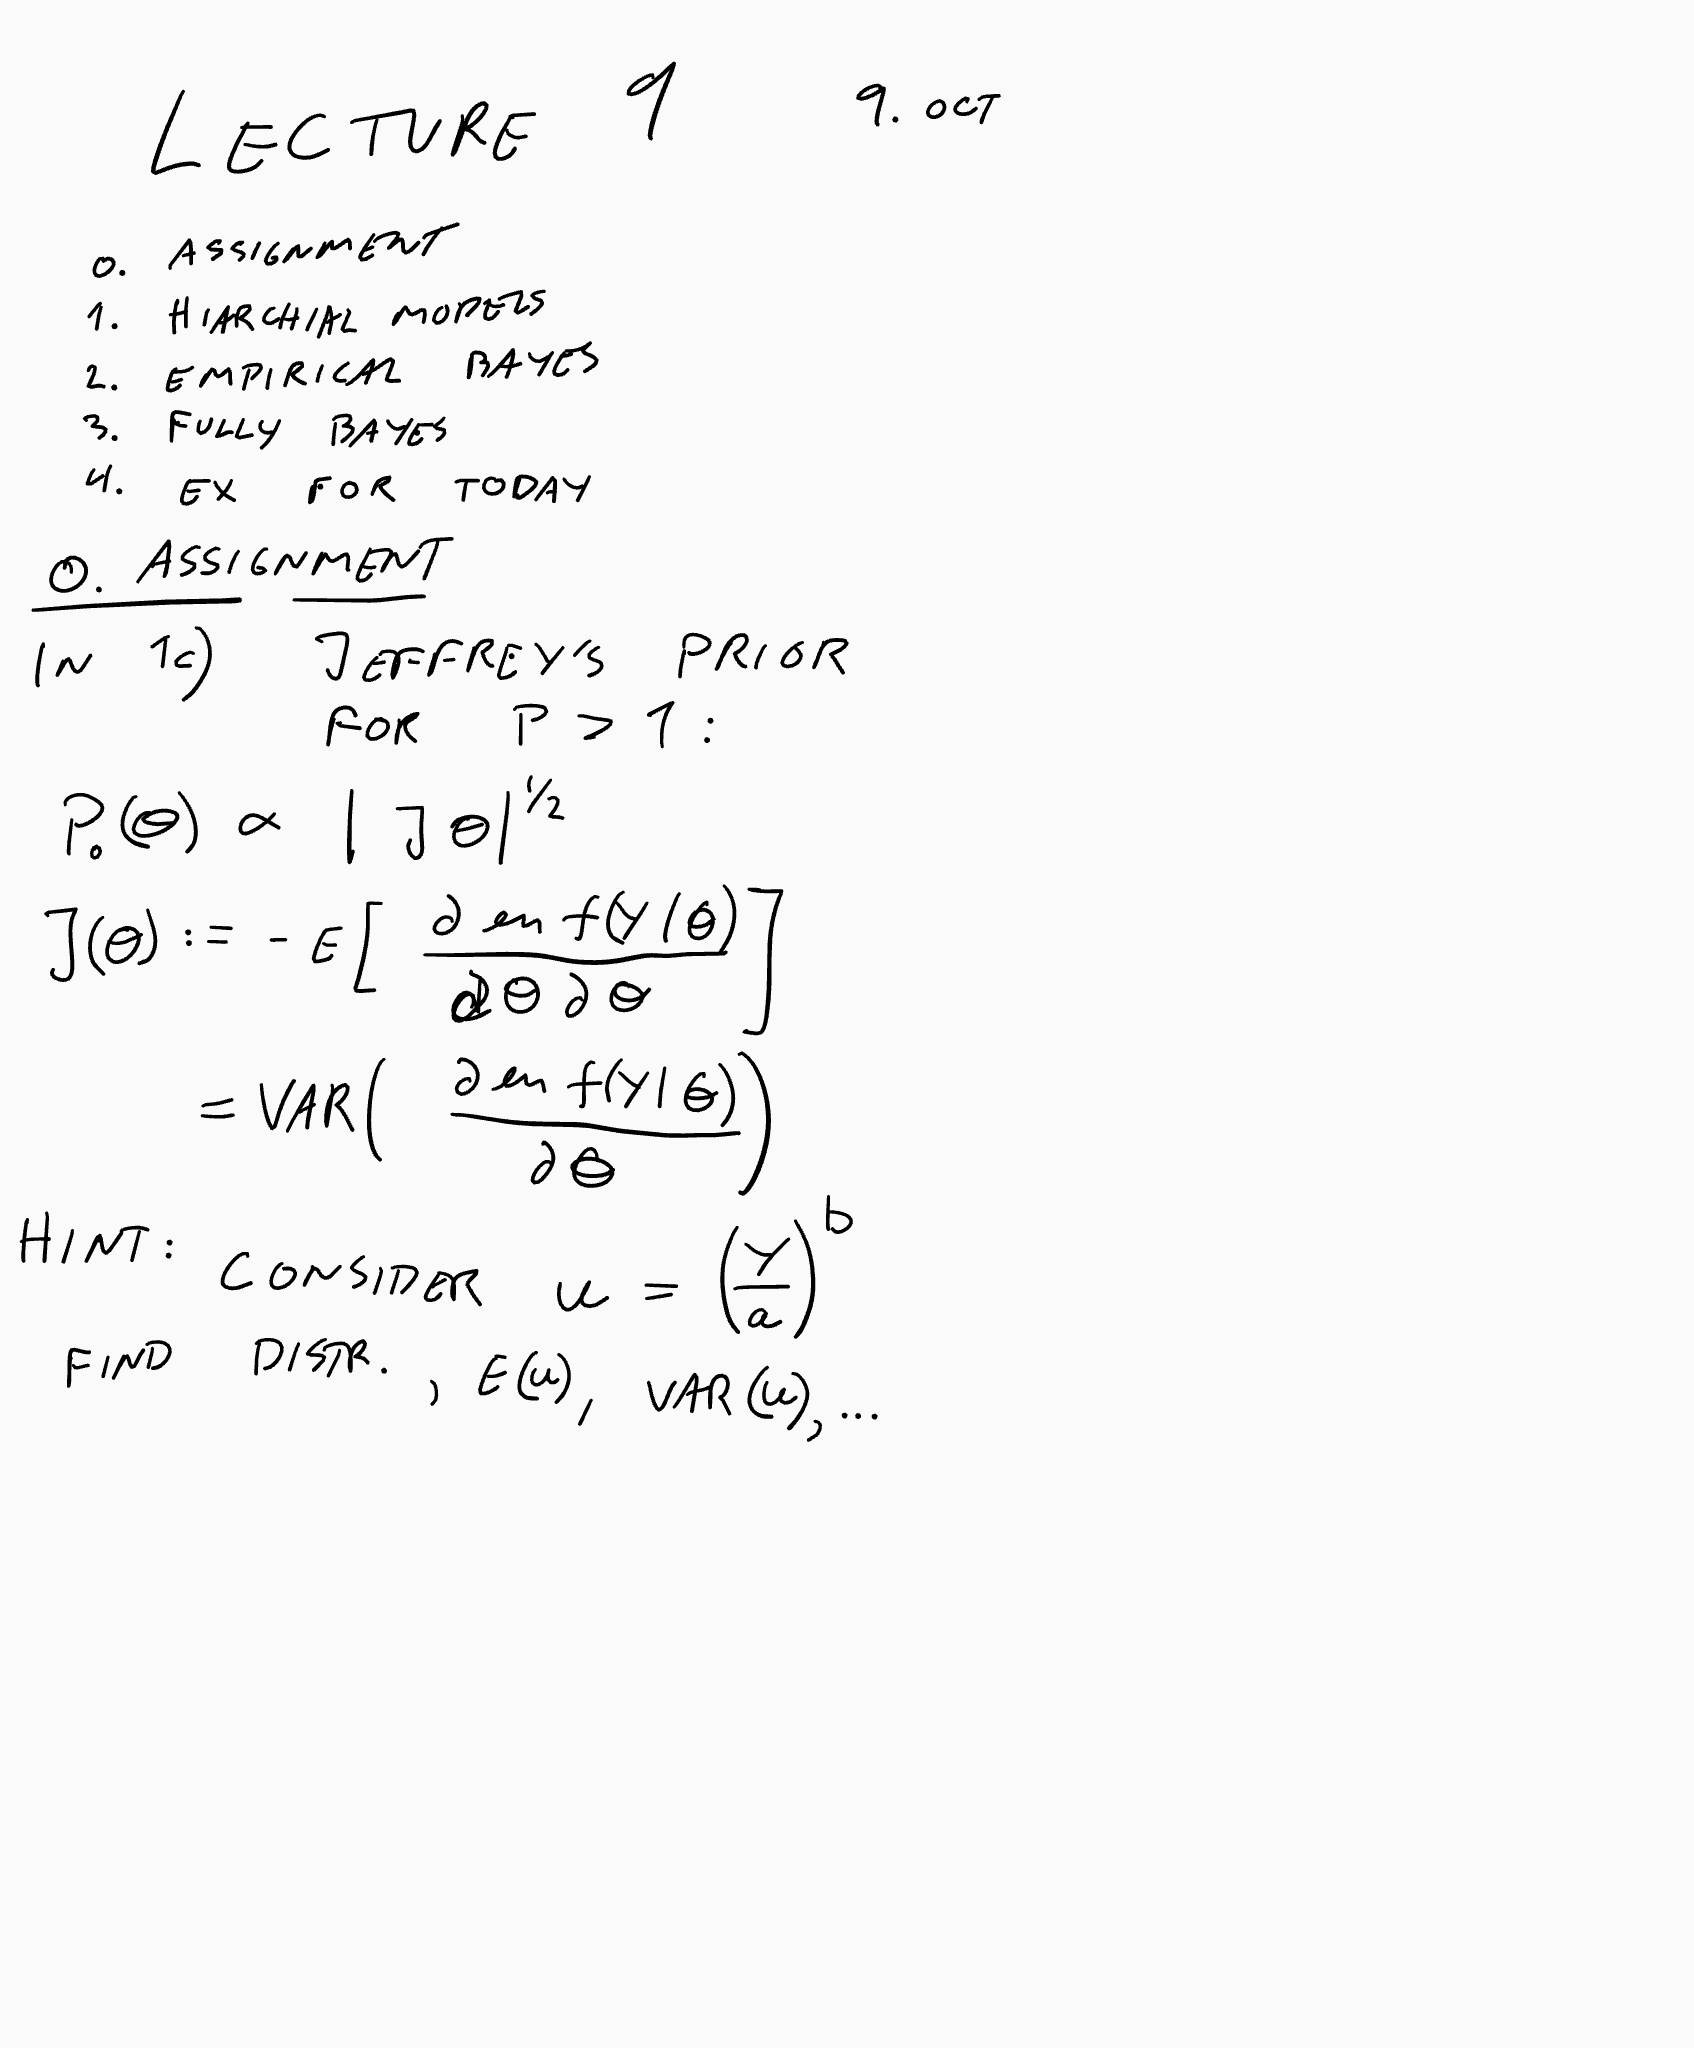 LECTURE 9 9. OCT
0. ASSIGNMENT
1. HIARCHIAL MODELS
2. EMPIRICAL BAYES
3. FULLY BAYES
4. EX FOR TODAY
0. ASSIGNMENT
IN 1c) JEFFREY'S PRIOR
FOR P > 1 :
P₀(θ) ∝ | J θ|^1/2
J(θ) := - E[ ∂ ln f(Y|θ) / ∂θ∂θ ]
= VAR( ∂ ln f(Y|θ) / ∂θ )
HINT: CONSIDER u = (Y/a)^b
FIND DISTR. , E(u), VAR(u), ...